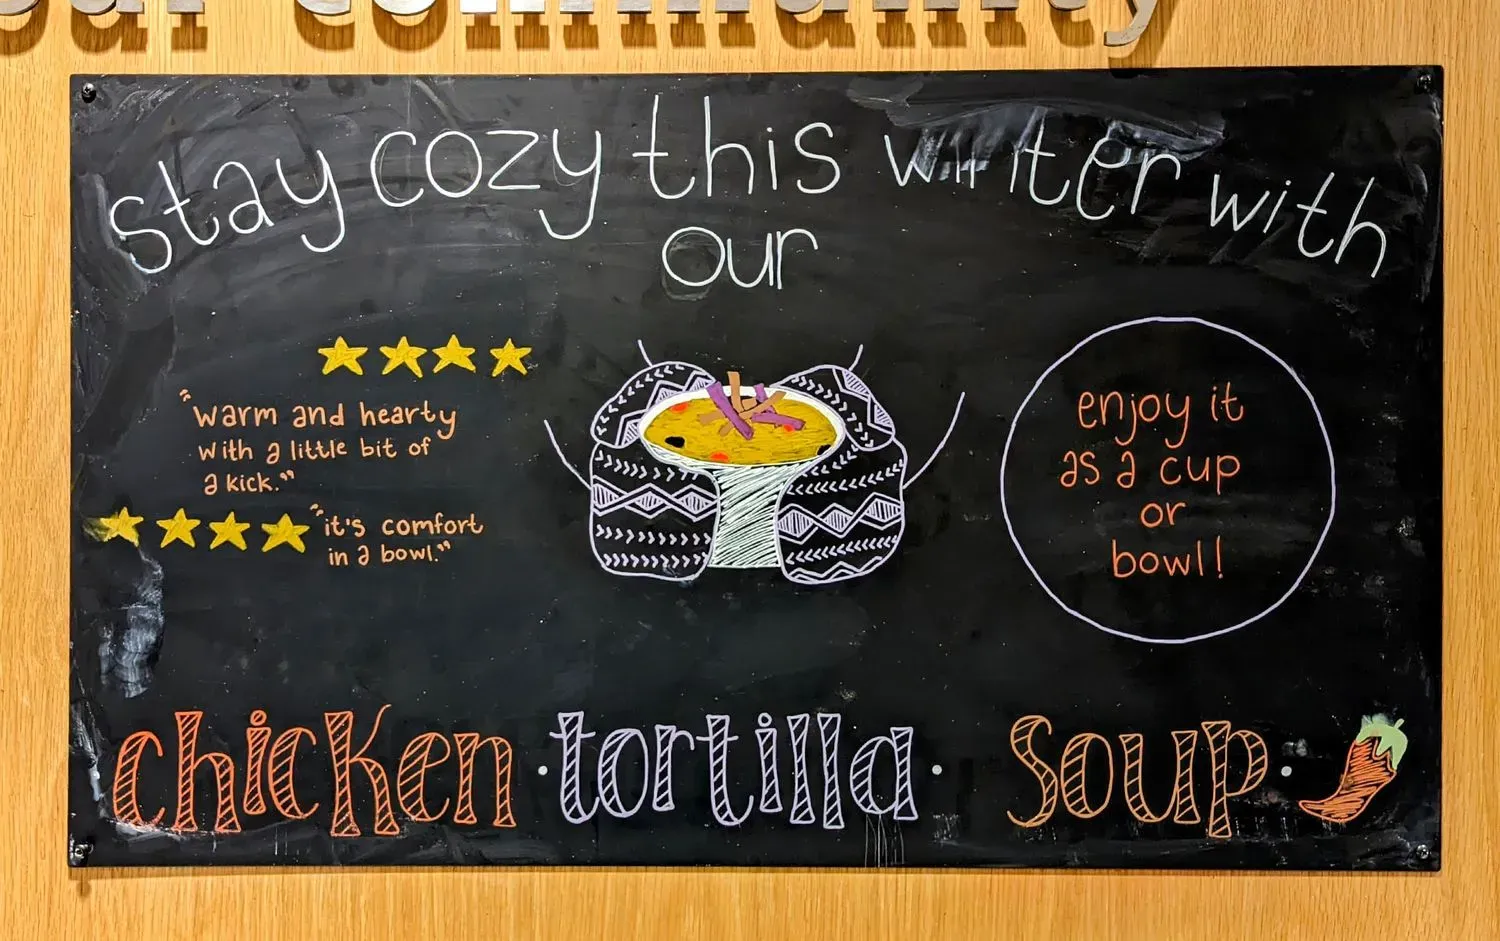 our community
stay cozy this winter with
our
"warm and hearty
with a little bit of
a kick."
"it's comfort
in a bowl."
enjoy it
as a cup
or
bowl!
chicken · tortilla · soup ·